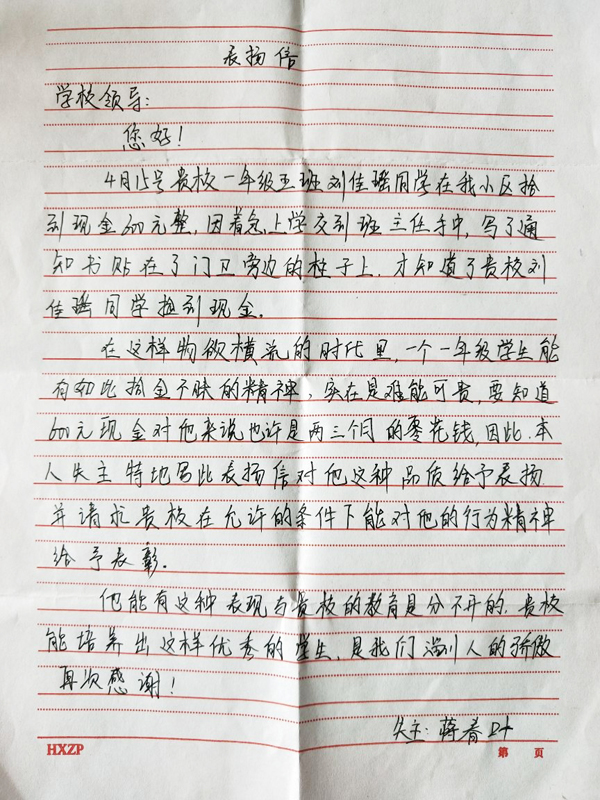 表扬信
学校领导:
您好!
4月15号贵校一年级五班刘佳瑶同学在我小区捡
到现金600元整,因着急上学交到班主任手中,写了通
知书贴在了门卫旁边的柱子上.才知道了贵校刘
佳瑶同学捡到现金.
在这样物欲横流的时代里,一个一年级学生能
有如此拾金不昧的精神,实在是难能可贵,要知道
600元现金对他来说也许是两三个月的零花钱,因此.本
人失主特地写此表扬信对他这种品质给予表扬
并请求贵校在允许的条件下能对他的行为精神
给予表彰.
他能有这种表现与贵校的教育是分不开的.贵校
能培养出这样优秀的学生,是我们淄川人的骄傲
再次感谢!
失主:蒋春叶
HXZP
第 页